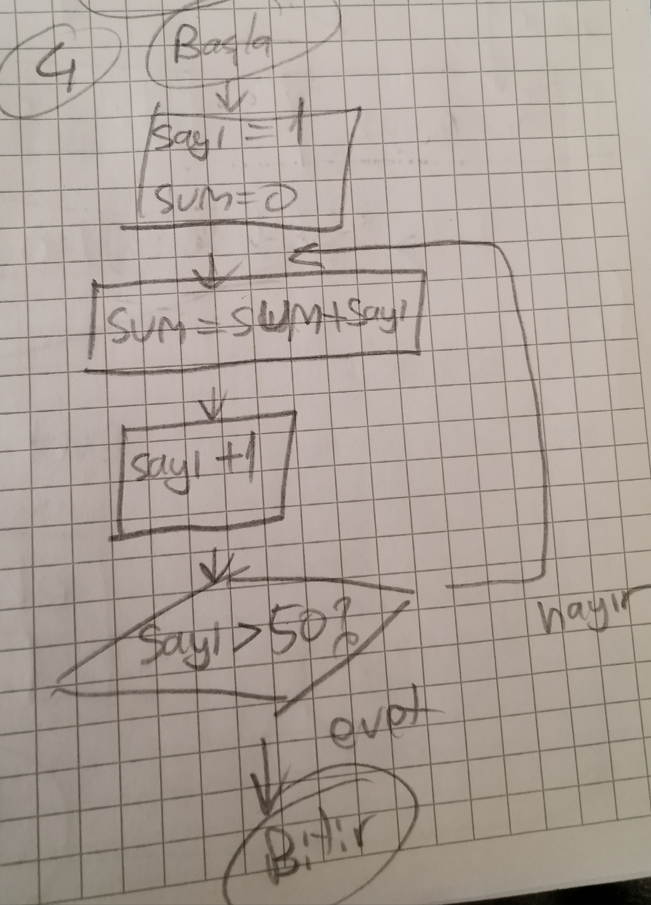 4
Başla
sayı = 1
sum=0
sum=sum+sayı
sayı +1
sayı > 50?
hayır
evet
Bitir